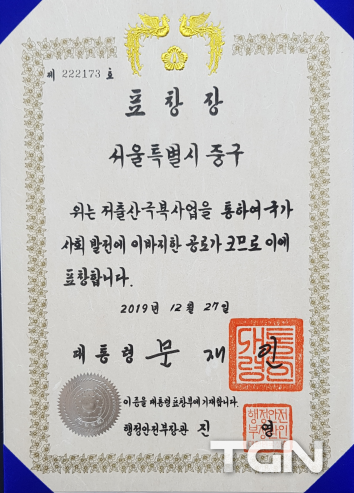 제 222173 호
표창장
서울특별시 중구
위는 저출산극복사업을 통하여 국가
사회 발전에 이바지한 공로가 크므로 이에
표창합니다.
2019년 12월 27일
대통령 문 재 인
이 증을 대통령 표창부에 기재합니다.
행정안전부장관 진 영
TGN